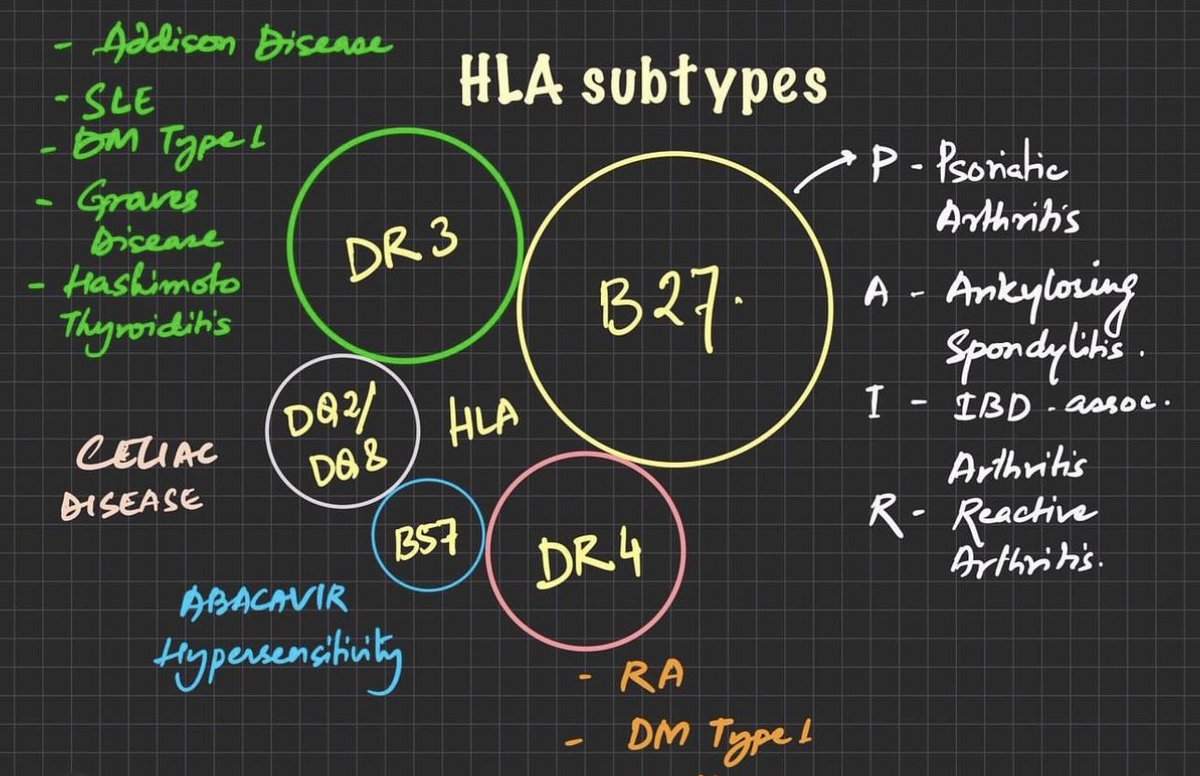 HLA subtypes
- Addison Disease
- SLE
- DM Type 1
- Graves
Disease
- Hashimoto
Thyroiditis
DR3
B27.
P - Psoriatic
Arthritis
A - Ankylosing
Spondylitis.
I - IBD - assoc.
Arthritis
R - Reactive
Arthritis.
DQ2/
DQ8
HLA
CELIAC
DISEASE
B57
DR4
ABACAVIR
Hypersensitivity
- RA
- DM Type 1